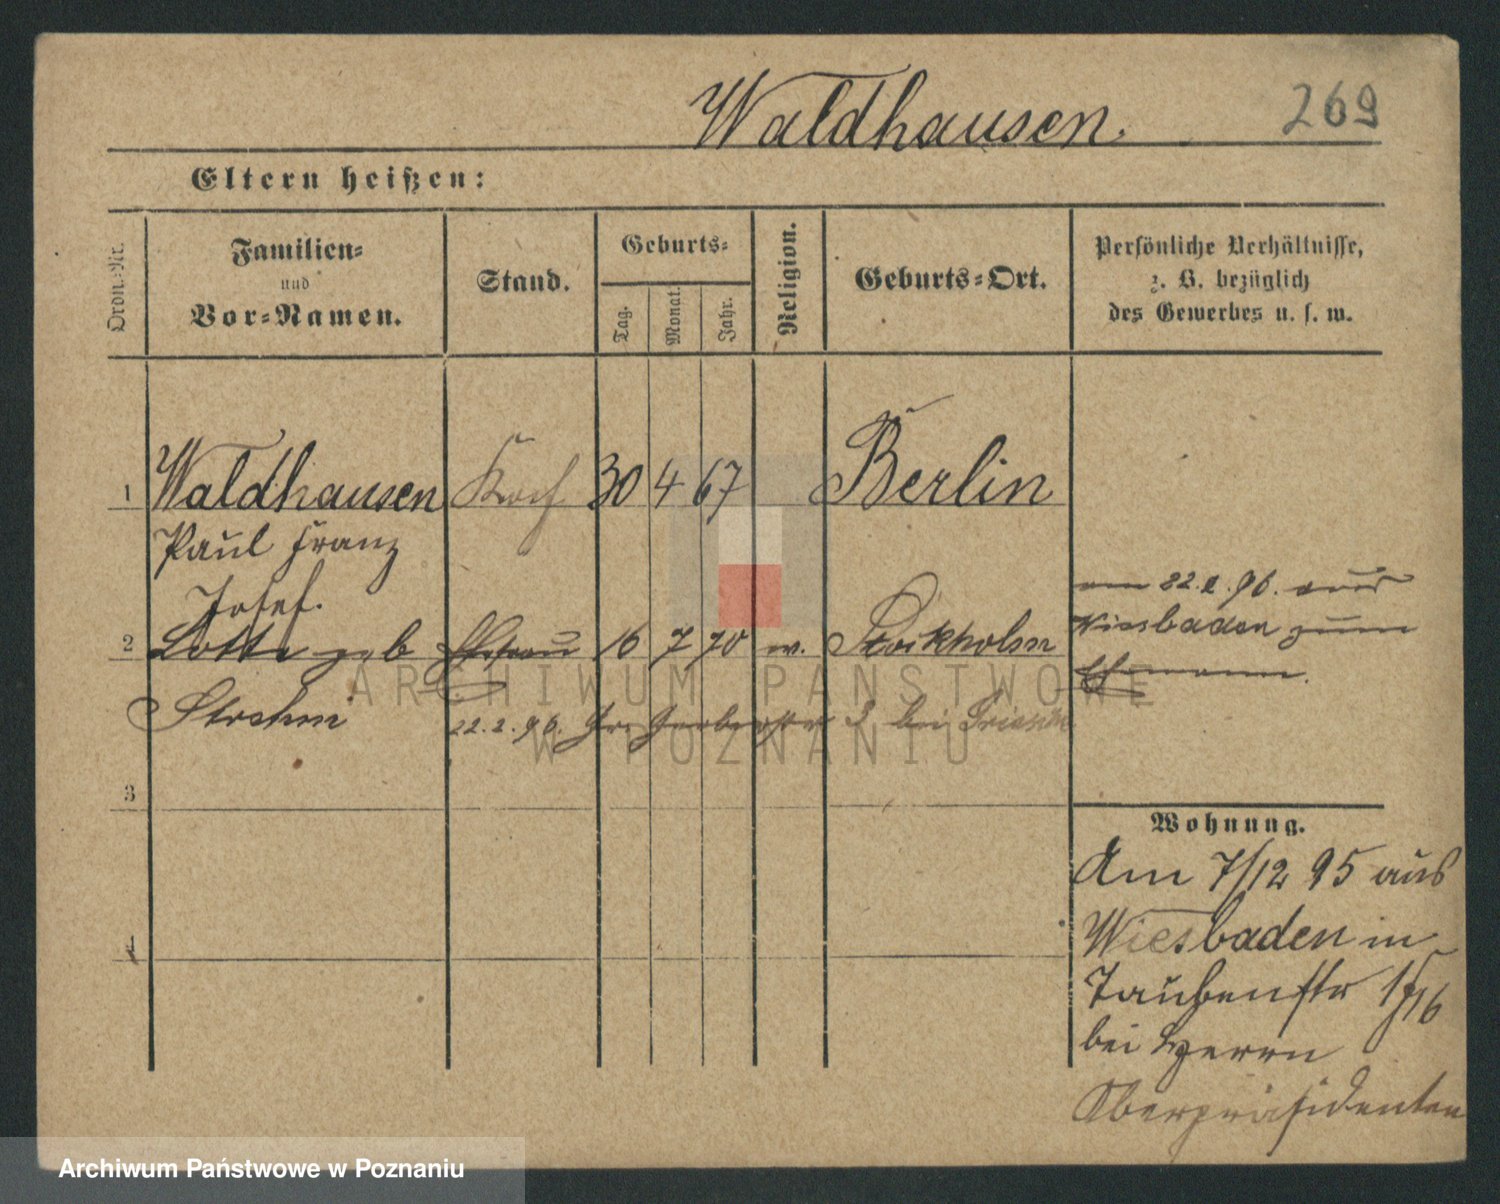 Waldhausen.
269
Eltern heißen:
Ordn.-Nr.
Familien-
und
Vor-Namen.
Stand.
Geburts-
Tag.
Monat.
Jahr.
Religion.
Geburts-Ort.
Persönliche Verhältnisse,
z. B. bezüglich
des Gewerbes u. s. w.
1 Waldhausen Koch 30 4 67 Berlin
Paul Franz
Josef.
2 Lotte geb Ehefrau 16 7 70 ev. Stockholm
Strehmi
22.2.96.
am 22.2.96. aus
Wiesbaden zum
Ehemann.
3
4
Wohnung.
Am 7/12 95 aus
Wiesbaden in
Taubenstr
bei Herrn
Oberpräsidenten
ARCHIWUM PAŃSTWOWE
W POZNANIU
Archiwum Państwowe w Poznaniu